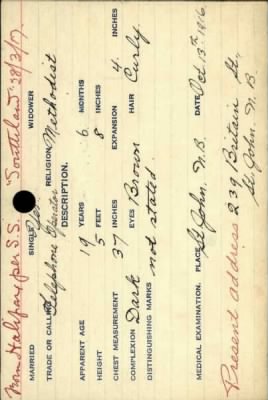 from Halifax per S.S. "Southland" 28/3/17.
MARRIED SINGLE Yes. WIDOWER
TRADE OR CALLING Telephone Operator RELIGION Methodist
DESCRIPTION.
APPARENT AGE 19 YEARS 6 MONTHS
HEIGHT 5 FEET 8 INCHES
CHEST MEASUREMENT 37 INCHES EXPANSION 4 INCHES
COMPLEXION Dark EYES Brown HAIR Curly.
DISTINGUISHING MARKS not stated.
MEDICAL EXAMINATION. PLACE St. John, N.B. DATE Oct 13th 1916
Present address 239 Britain St.,
St. John N.B.